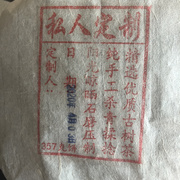 私人定制
精选优质古树茶
纯手工杀青揉捻
阳光晾晒石磨压制
日期:
定制人:
357克